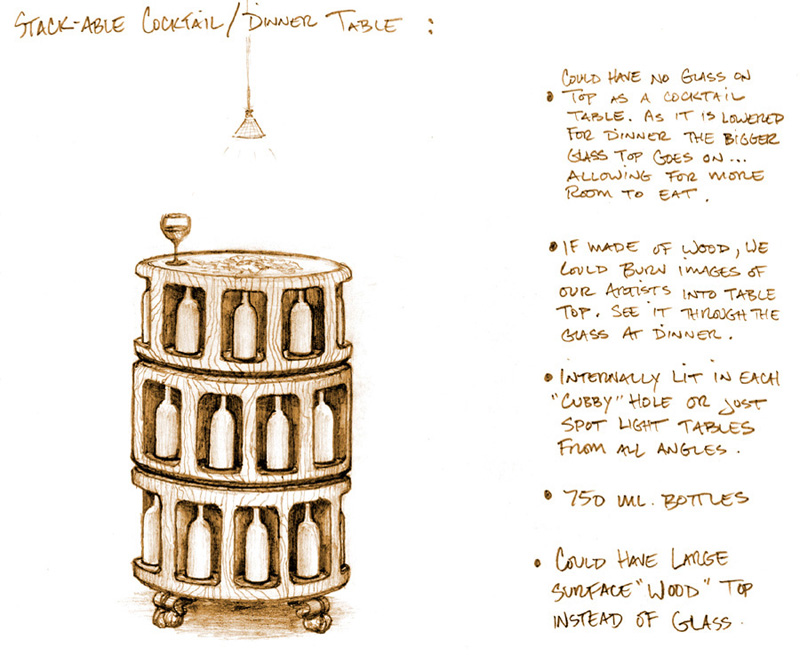 STACK-ABLE COCKTAIL/DINNER TABLE :
• COULD HAVE NO GLASS ON
TOP AS A COCKTAIL
TABLE. AS IT IS LOWERED
FOR DINNER THE BIGGER
GLASS TOP GOES ON...
ALLOWING FOR MORE
ROOM TO EAT.
• IF MADE OF WOOD, WE
COULD BURN IMAGES OF
OUR ARTISTS INTO TABLE
TOP. SEE IT THROUGH THE
GLASS AT DINNER.
• INTERNALLY LIT IN EACH
"CUBBY" HOLE OR JUST
SPOT LIGHT TABLES
FROM ALL ANGLES.
• 750 ML. BOTTLES
• COULD HAVE LARGE
SURFACE "WOOD" TOP
INSTEAD OF GLASS.